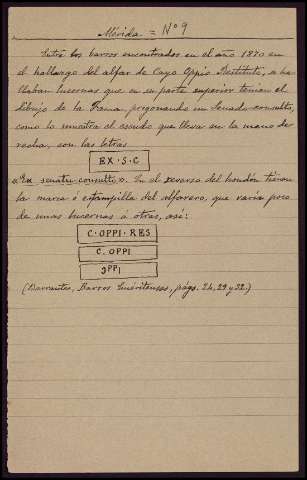 Mérida = Nº 9
Entre los barros encontrados en el año 1870 en
el hallazgo del alfar de Cayo Oppio Restituto, se ha-
llaban lucernas que en su parte superior tenían el
dibujo de la Fama, pregonando un Senado-consulto,
como lo muestra el escudo que lleva en la mano de-
recha, con las letras
EX·S·C
«Ex senatu-consulto». En el reverso del hondón tienen
la marca ó estampilla del alfarero, que varía poco
de unas lucernas á otras, así:
C·OPPI·RES
C. OPPI
OPPI
(Barrantes, Barros Emeritenses, págs. 24, 29 y 32.)